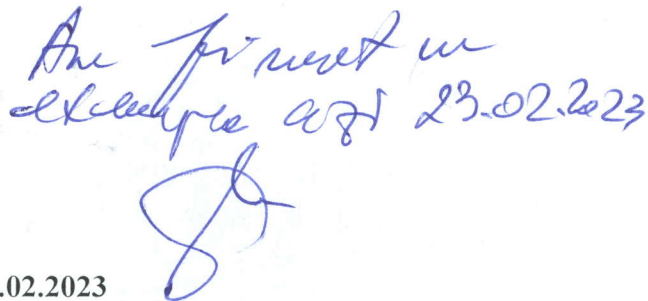 Am primit un
exemplar azi 23.02.2023
.02.2023